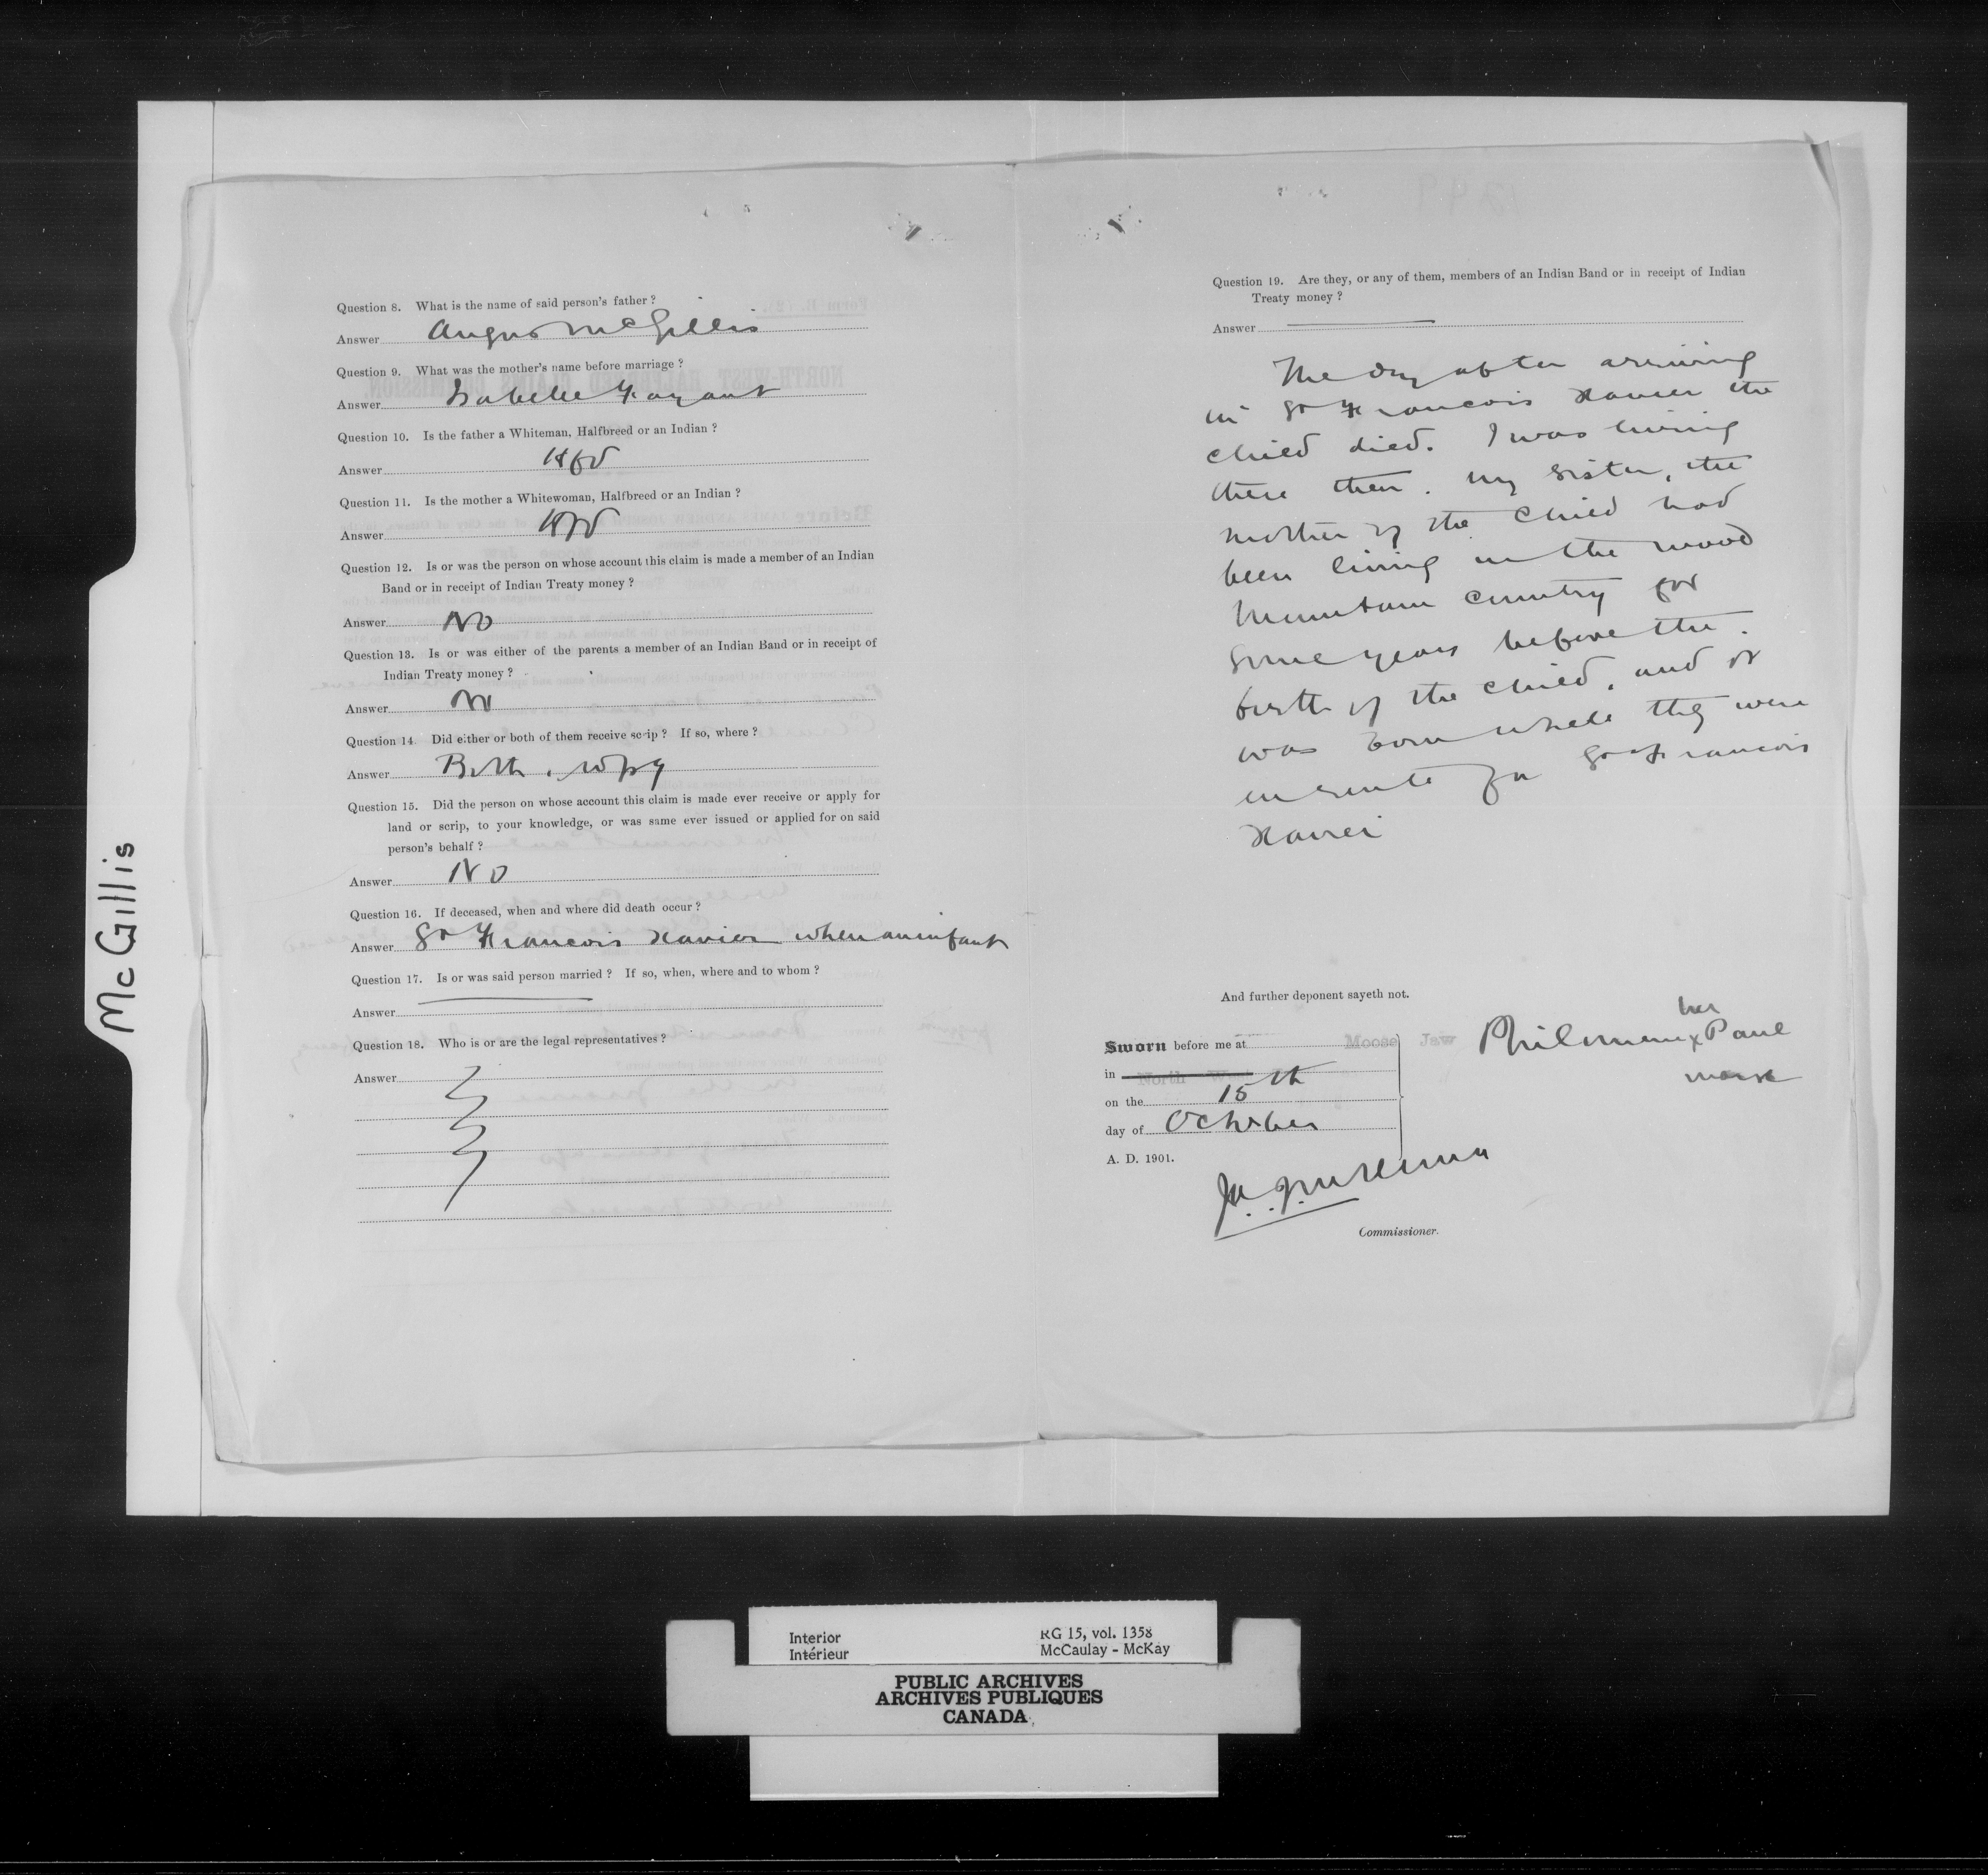 McGillis
Question 8. What is the name of said person's father ?
Answer Angus McGillis
Question 9. What was the mother's name before marriage ?
Answer Isabelle Fayant
Question 10. Is the father a Whiteman, Halfbreed or an Indian ?
Answer Hfbd
Question 11. Is the mother a Whitewoman, Halfbreed or an Indian ?
Answer Hfbd
Question 12. Is or was the person on whose account this claim is made a member of an Indian
Band or in receipt of Indian Treaty money ?
Answer No
Question 13. Is or was either of the parents a member of an Indian Band or in receipt of
Indian Treaty money ?
Answer No
Question 14. Did either or both of them receive scrip ? If so, where ?
Answer Both. Wpg
Question 15. Did the person on whose account this claim is made ever receive or apply for
land or scrip, to your knowledge, or was same ever issued or applied for on said
person's behalf ?
Answer No
Question 16. If deceased, when and where did death occur ?
Answer St Francois Xavier when an infant
Question 17. Is or was said person married ? If so, when, where and to whom ?
Answer
Question 18. Who is or are the legal representatives ?
Answer
Question 19. Are they, or any of them, members of an Indian Band or in receipt of Indian
Treaty money ?
Answer
The day after arriving
in St Francois Xavier the
child died. I was living
there then. my sister, the
mother of the child had
been living in the wood
Mountain country for
some years before the
birth of the child, and it
was born while they were
en route for St Francois
Xavier
And further deponent sayeth not.
Sworn before me at Moose Jaw
in North West
on the 15th
day of October
A. D. 1901.
her
Philomene x Paul
mark
Commissioner.
Interior RG 15, vol. 1358
Intérieur McCaulay - McKay
PUBLIC ARCHIVES
ARCHIVES PUBLIQUES
CANADA